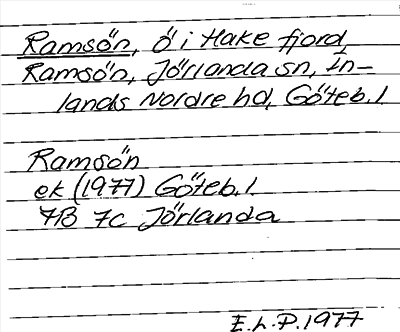 Ramsön, ö i Hake fjord,
Ramsön, Jörlanda sn, In-
lands Nordre hd, Göteb. l.
Ramsön
ek (1977) Göteb. l.
7B 7c Jörlanda
E.L.P. 1977